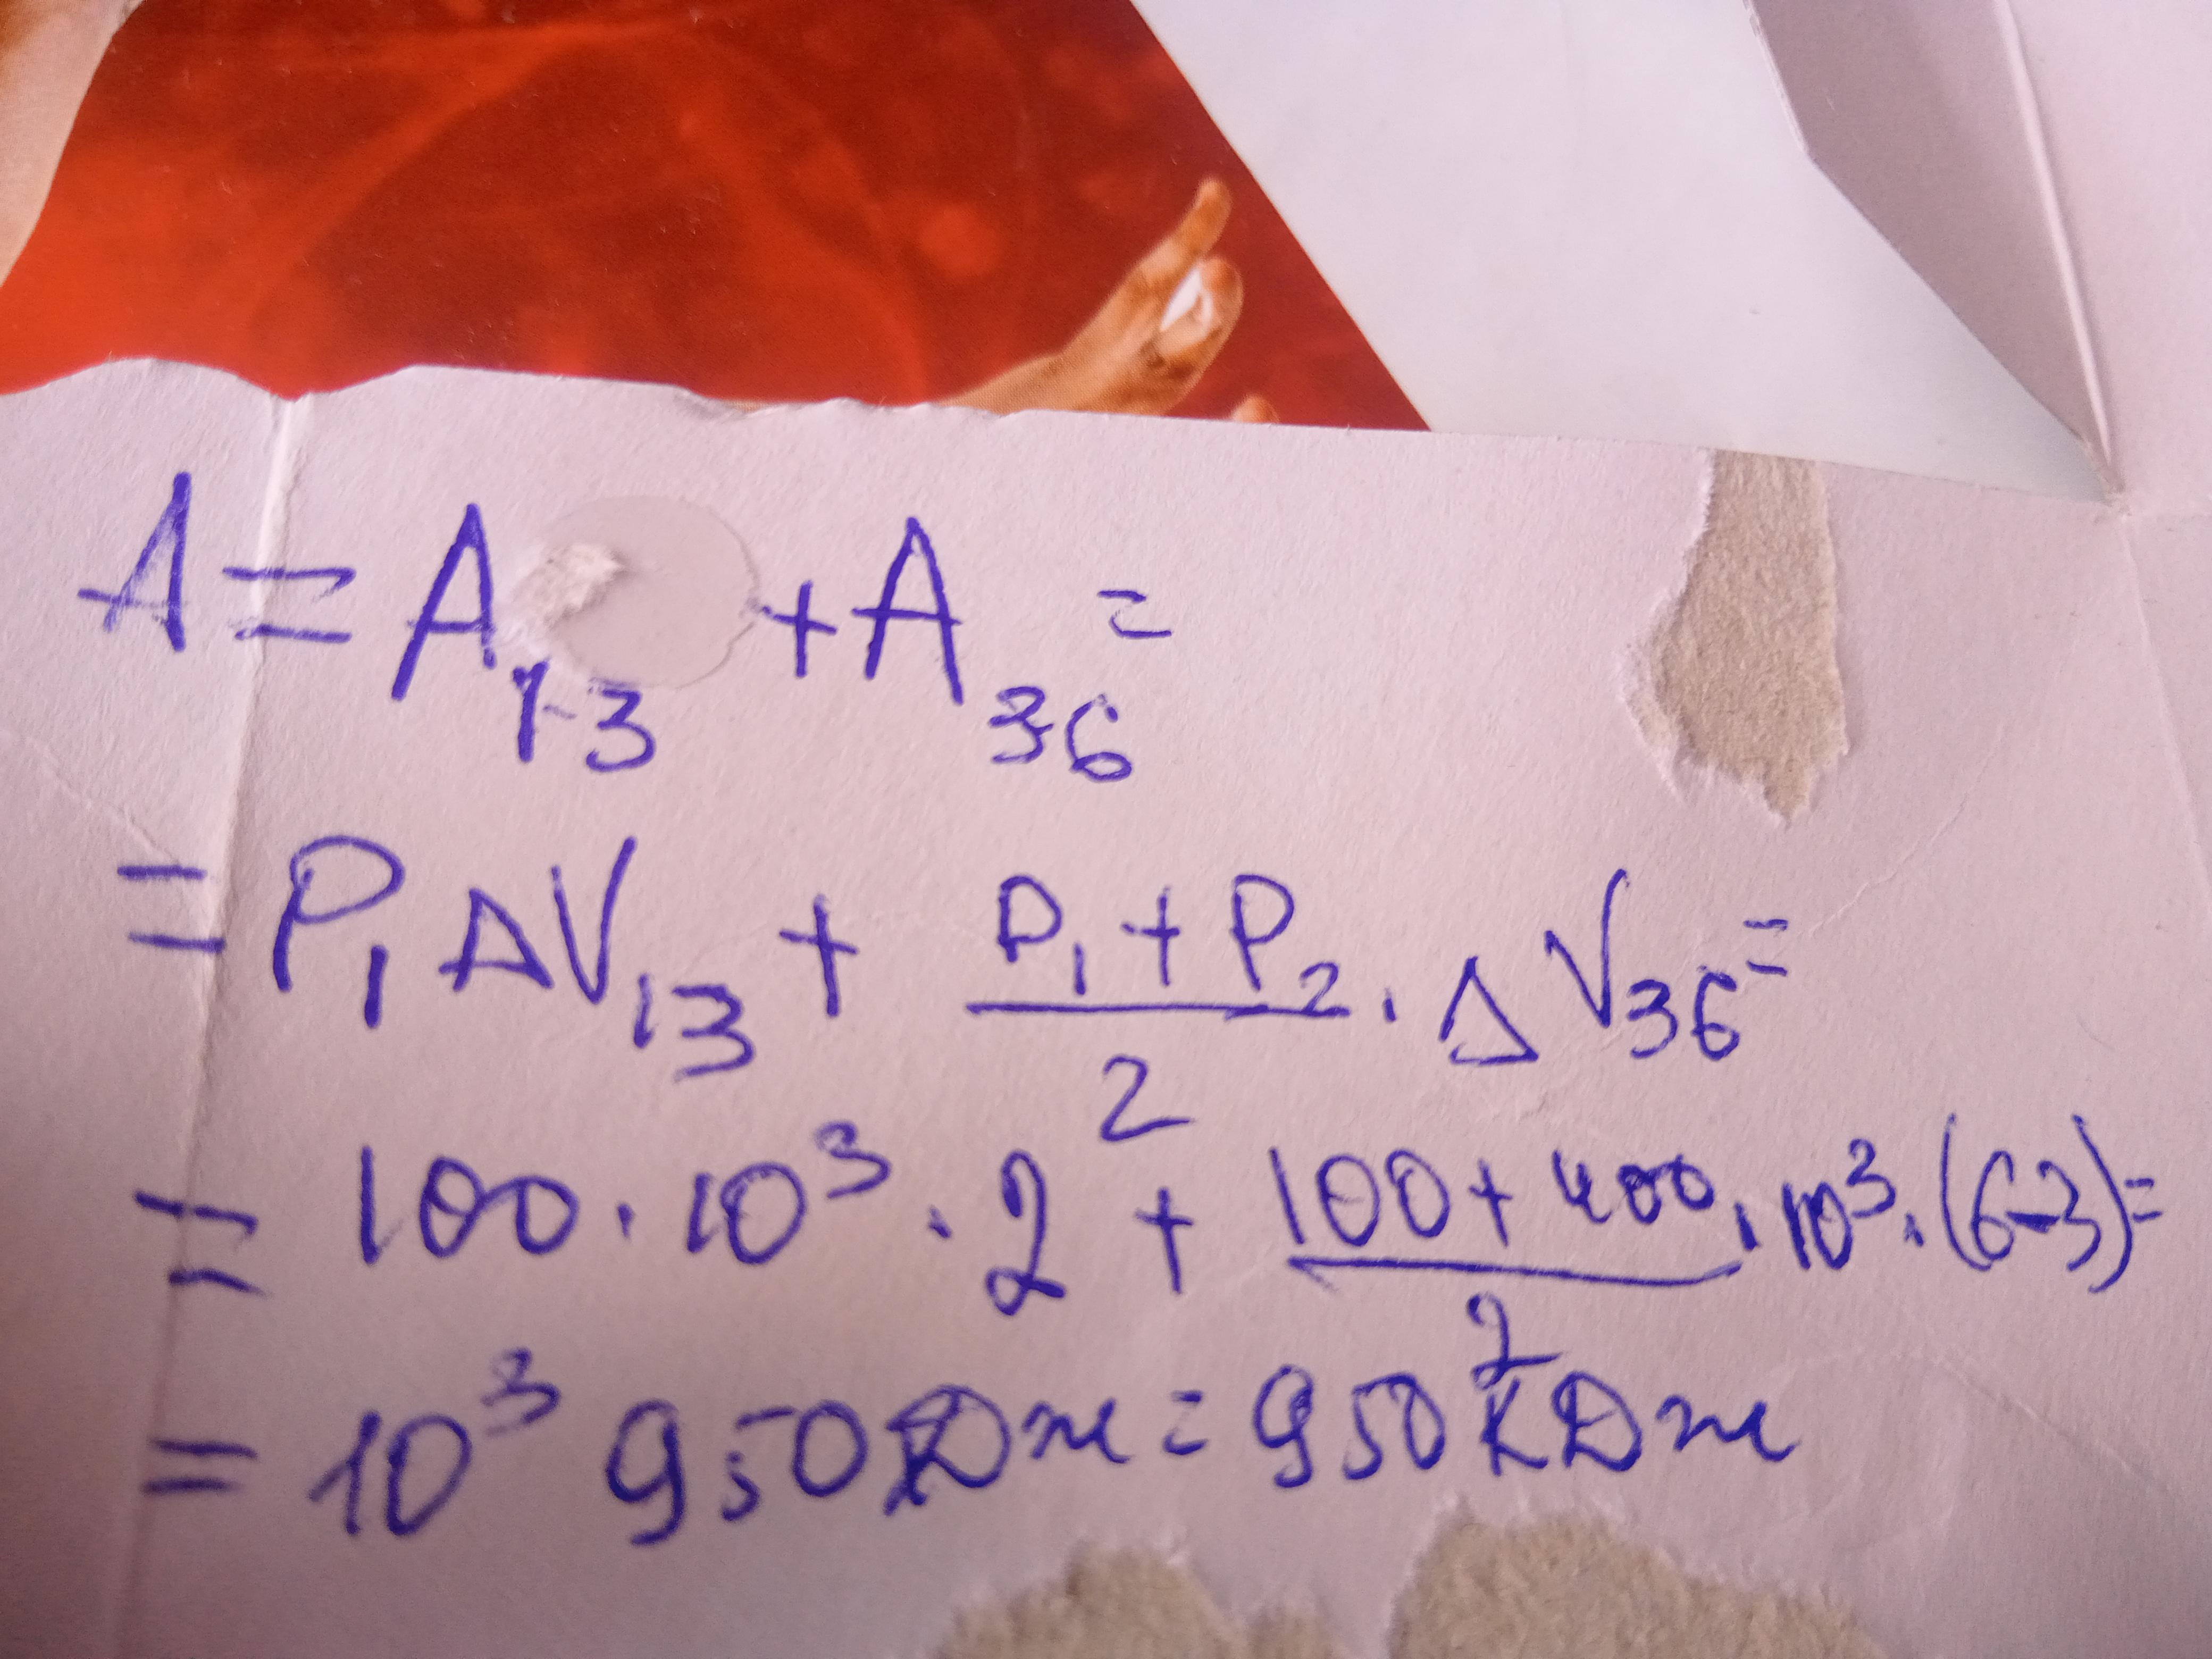 A = A₁₋₃ + A₃₆ =
= P₁ ΔV₁₃ + (P₁ + P₂)/2 · ΔV₃₆ =
= 100 · 10³ · 2 + (100 + 400)/2 · 10³ · (6-3) =
= 10³ 950 Дж = 950 кДж